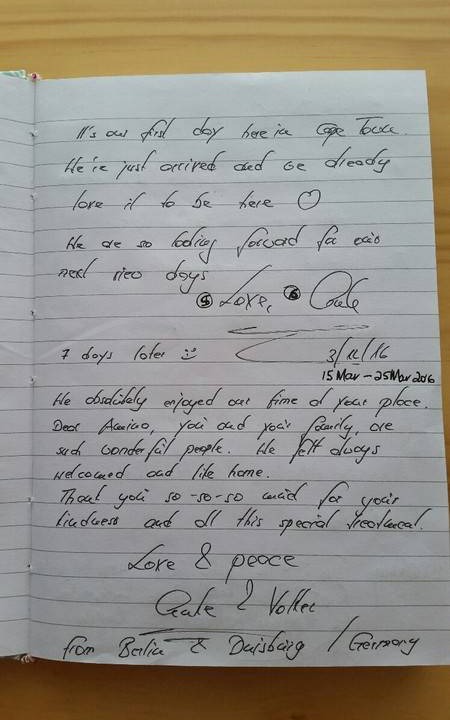 It's our first day here in Cape Town.
We're just arrived and we already
love it to be here ♡
We are so looking forward for our
next nice days
Love,
7 days later
3/12/16
15 Mar – 25 Mar 2016
We absolutely enjoyed our time at your place.
Dear Amina, you and your family, are
such wonderful people. We felt always
welcomed and like home.
Thank you so-so-so much for your
kindness and all this special treatment.
Love & peace
& Volker
from Berlin & Duisburg / Germany